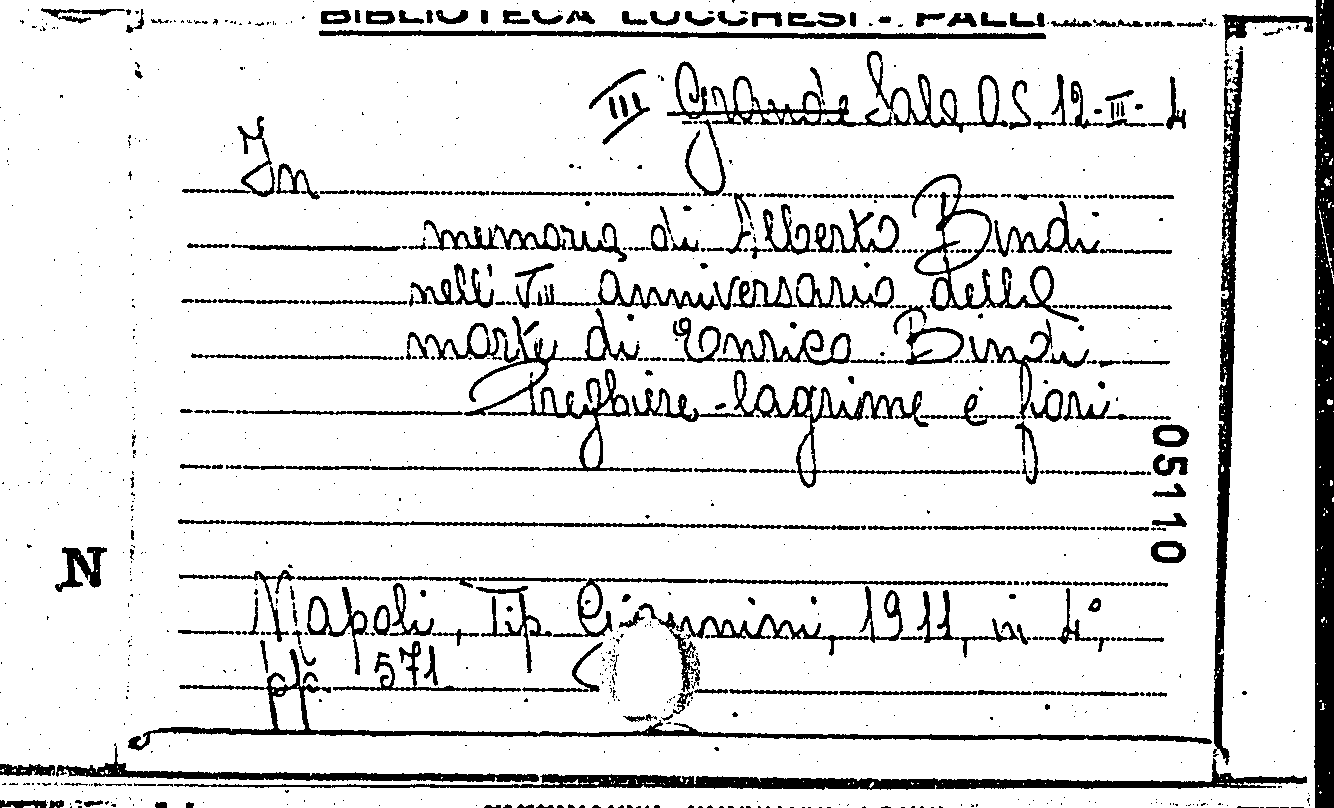 BIBLIOTECA LUCCHESI - PALLI
III Grande Sala, O.S. 12-III-4
In
memoria di Alberto Bindi
nell' VIII anniversario della
morte di Enrico Bindi.
Preghiere - lagrime e fiori.
05110
N
Napoli, Tip. Giannini, 1911, in 4°,
pp. 571